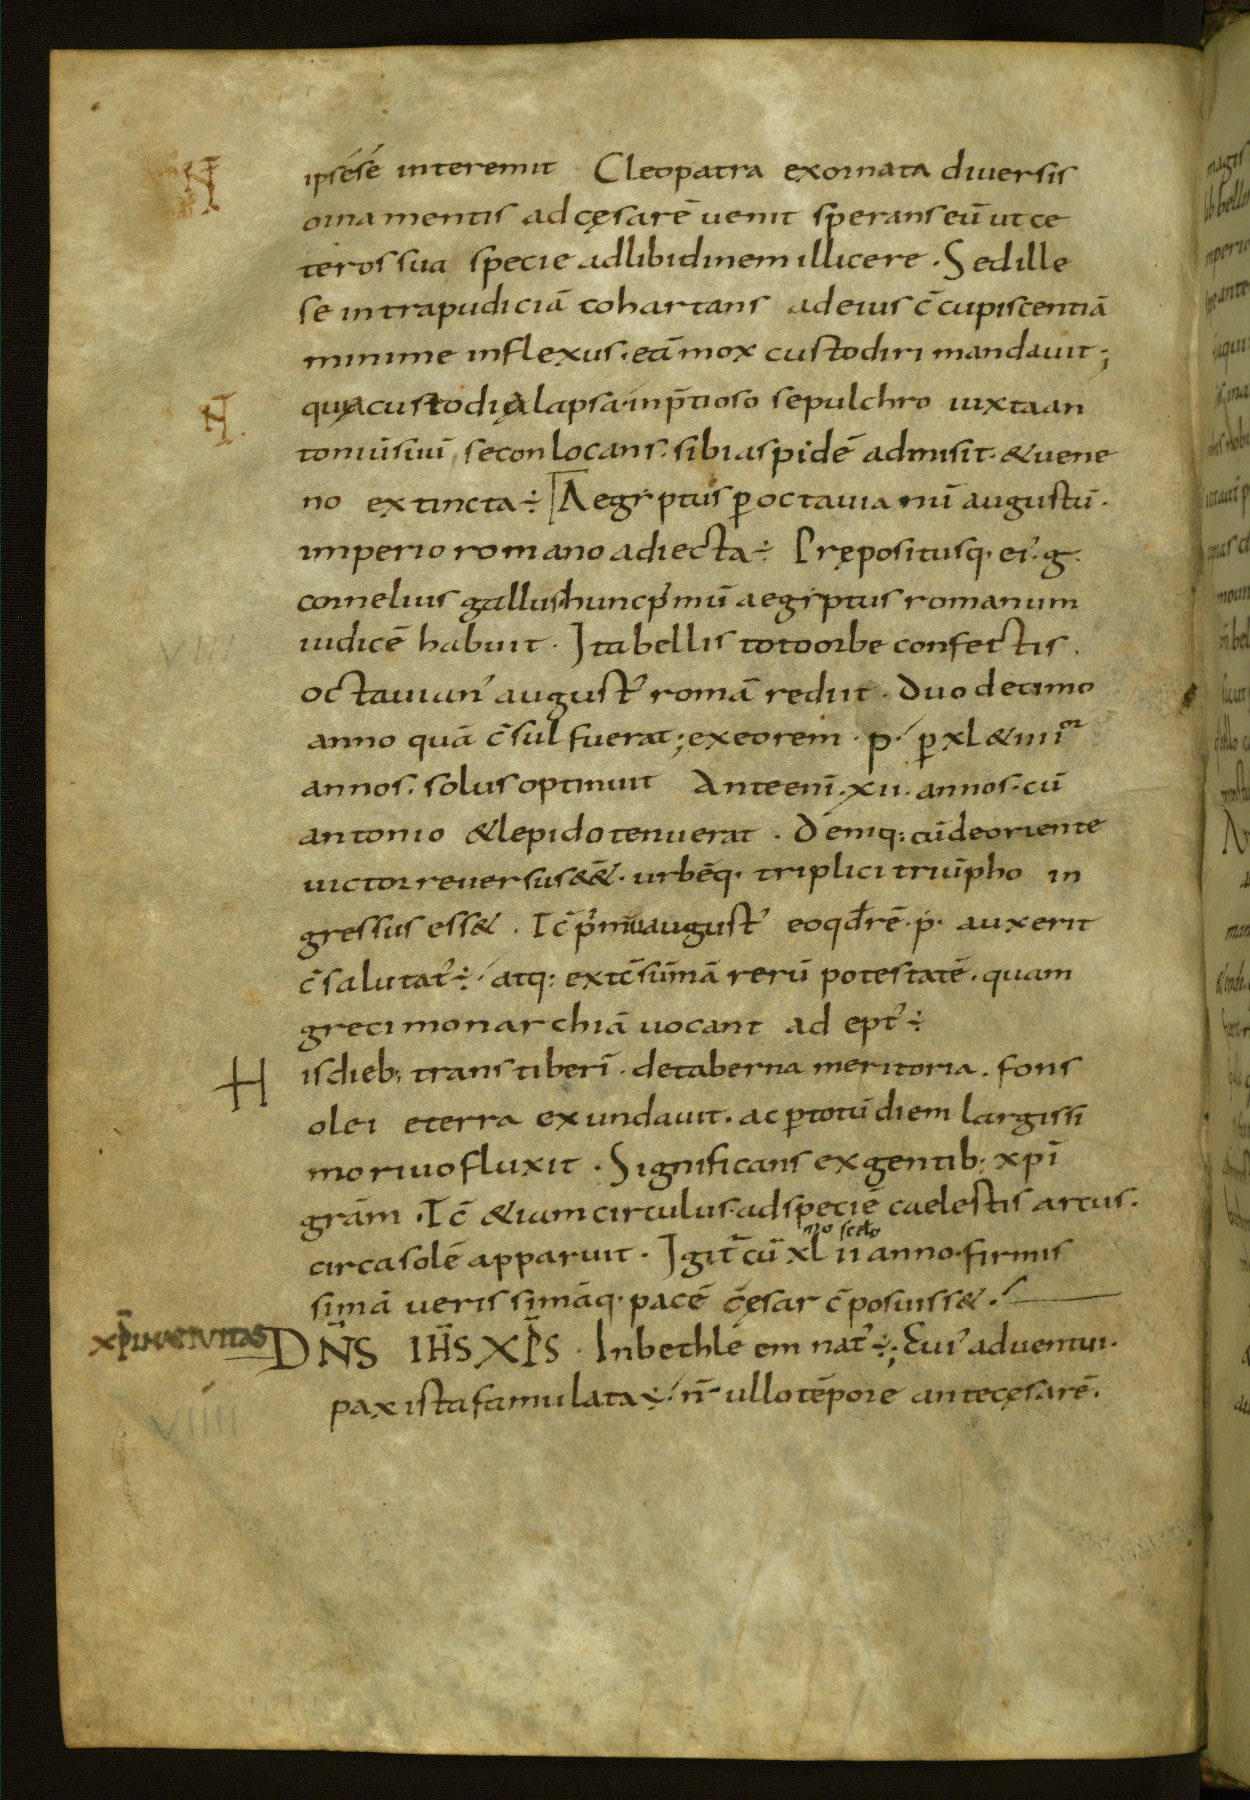 ipsese interemit Cleopatra exornata diuersis
ornamentis ad cęsarē uenit sperans eū ut ce
teros sua specie ad libidinem illicere . Sed ille
se intra pudiciā cohartans ad eius c̄cupiscentiā
minime inflexus . eā mox custodiri mandauit ;
quę a custodia lapsa . in p̄tioso sepulchro iuxta an
toniū siuū se conlocans . sibi aspidē admisit . & uene
no extincta ÷ Aegiptus ꝑ octauianū augustū .
imperio romano adiecta ÷ Prępositusq . ei' . g .
cornelius gallus hunc p'mū aegiptus romanum
iudicē habuit . Ita bellis toto orbe confectis .
octauian' august' romā rediit . Duodecimo
VIII
anno quā c̄sul fuerat ; ex eo rem . p . ꝑ xl & iiii or
annos . solus optinuit Ante enī . xii . annos . cū
antonio & lepido tenuerat . Deniq ; cū de oriente
uictor reuersus e&& . urbēq . triplici triūpho in
gressus ess& . Ic̄ p'mū august' eo qd rē . p . auxerit
c̄salutat' ÷ atq ; ex tc̄ sūmā rerū potestatē . quam
greci monarchiā uocant adept' ÷
His dieb ; trans tiberī . de taberna meritoria . fons
olei e terra exundauit . ac ꝑ totū diem largissi
mo riuo fluxit . Significans ex gentib ; xp̄i
grām . Ic̄ & iam circulus . ad speciē caelestis arcus .
mo scdo
circa solē apparuit . Igit̄ cū xl ii anno . firmis
simā uerissimāq . pacē cęsar c̄posuiss& .
xp̄i natiuitas
DN̄S IH̄S XP̄S . In bethleem nat' ÷ ; Cui' aduentui .
pax ista famulata ÷ . n̄ ullo tēpore ante cęsarē .
VIIII